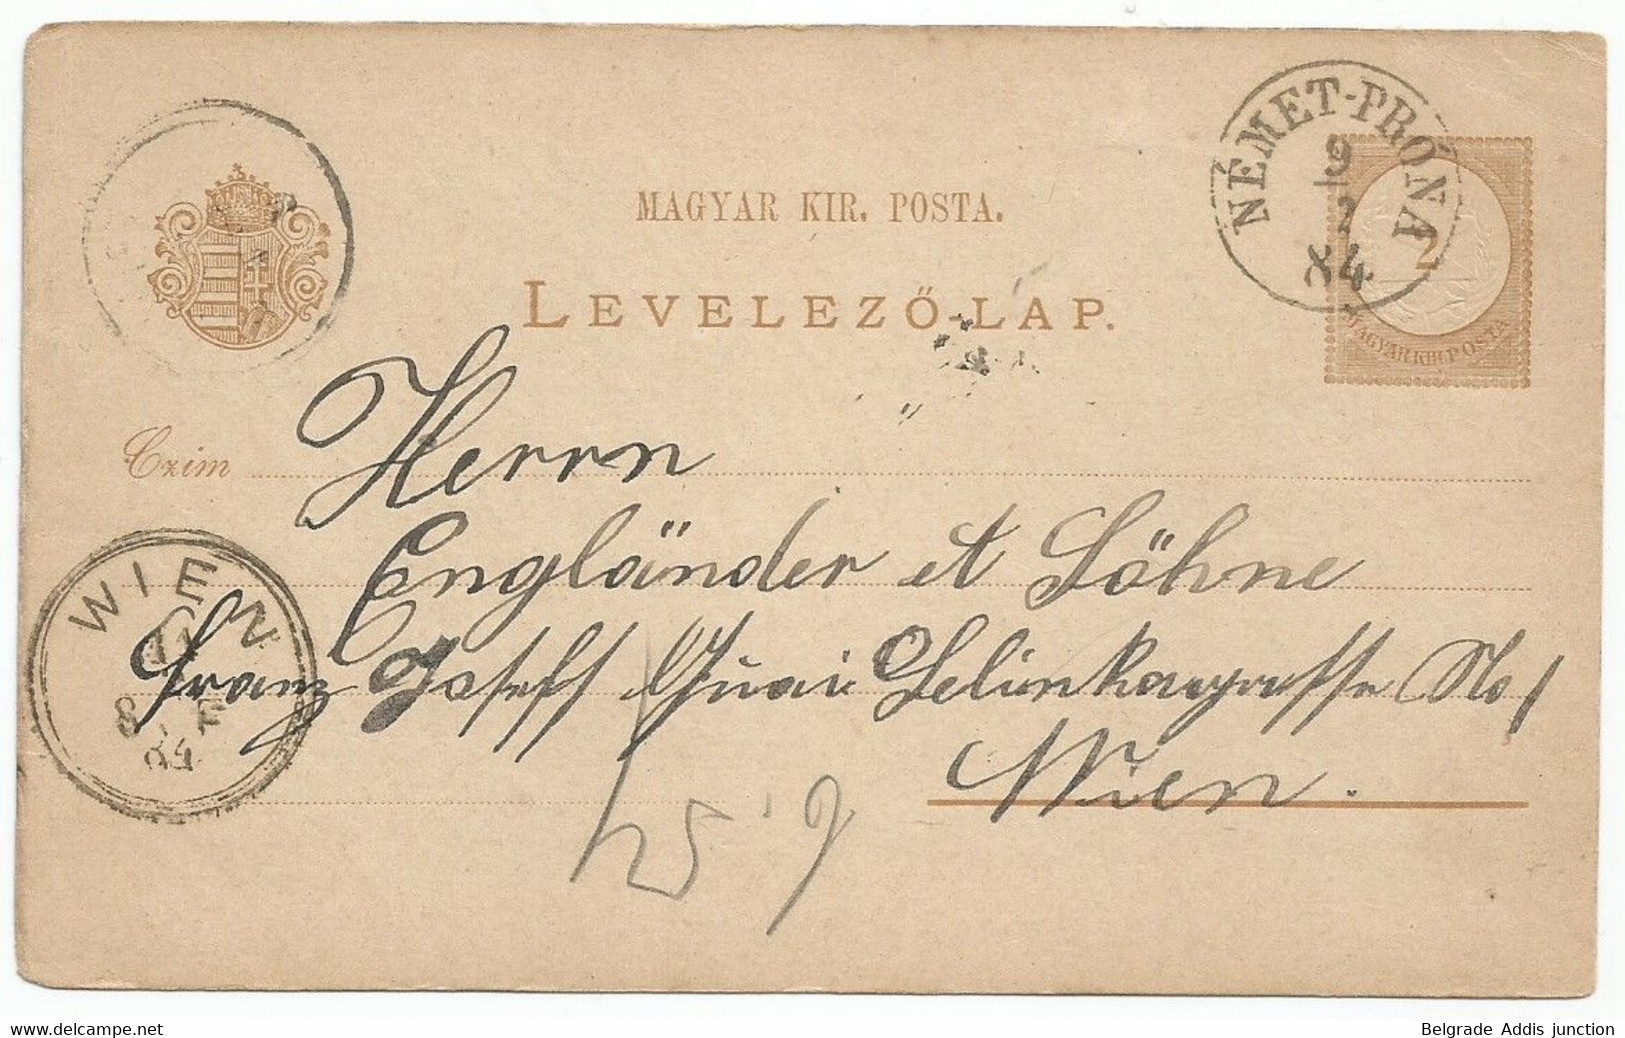 MAGYAR KIR. POSTA.
LEVELEZŐ-LAP.
NÉMET-PRÓNA
19
2
84
2
MAGYAR KIR. POSTA
Czim
Herrn
Engländer et Söhne
Franz Joseff Quai Selinkagasse No 1
Wien.
WIEN
11
8
84
delcampe.net
Belgrade Addis junction